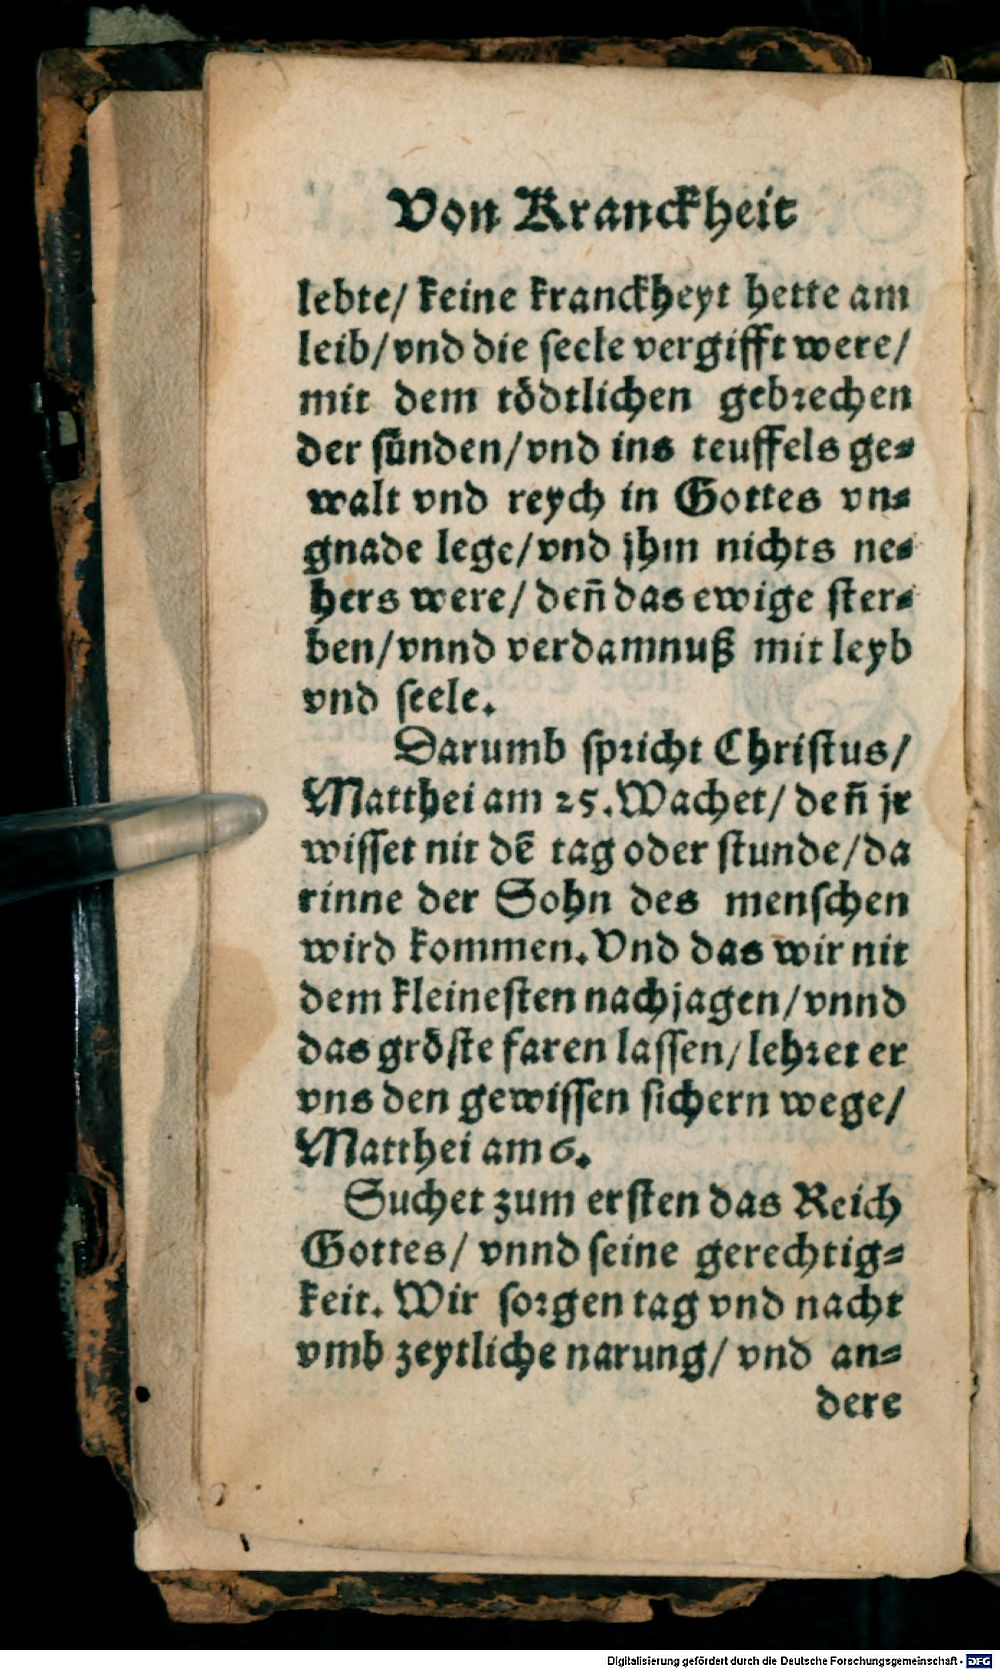 Von Kranckheit
lebte/ keine kranckheyt hette am
leib/vnd die seele vergifft were/
mit dem tödtlichen gebrechen
der sünden/vnd ins teuffels ge⸗
walt vnd reych in Gottes vn⸗
gnade lege/vnd jhm nichts ne⸗
hers were/ deñ das ewige ster⸗
ben/vnnd verdamnuß mit leyb
vnd seele.
Darumb spricht Christus/
Matthei am 25. Wachet/ deñ jr
wisset nit dē tag oder stunde/da
rinne der Sohn des menschen
wird kommen. Vnd das wir nit
dem kleinesten nachjagen/vnnd
das gröste faren lassen/ lehret er
vns den gewissen sichern wege/
Matthei am 6.
Suchet zum ersten das Reich
Gottes/ vnnd seine gerechtig⸗
keit. Wir sorgen tag vnd nacht
vmb zeytliche narung/ vnd an⸗
dere
Digitalisierung gefördert durch die Deutsche Forschungsgemeinschaft - DFG